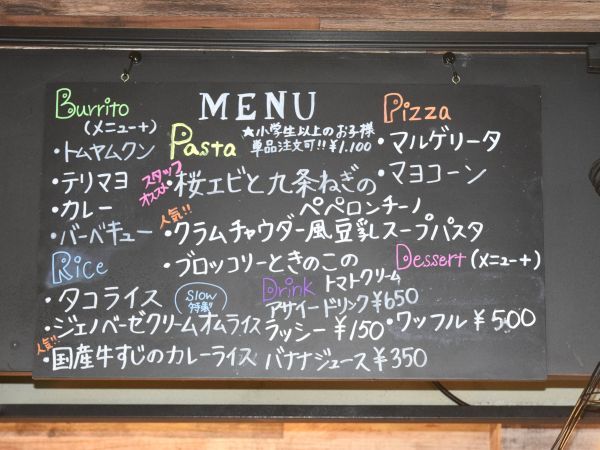 MENU
Burrito
(メニュー+)
・トムヤムクン
・テリマヨ
・カレー
・バーベキュー
Rice
・タコライス
slow
特製
・ジェノベーゼクリームオムライス
人気!!
・国産牛すじのカレーライス
Pasta
★小学生以上のお子様
単品注文可!! ¥1.100
スタッフ
オススメ
・桜エビと九条ねぎの
ペペロンチーノ
人気!!
・クラムチャウダー風豆乳スープパスタ
・ブロッコリーときのこの
トマトクリーム
Drink
アサイードリンク ¥650
ラッシー ¥150
バナナジュース ¥350
Pizza
・マルゲリータ
・マヨコーン
Dessert (メニュー+)
・ワッフル ¥500